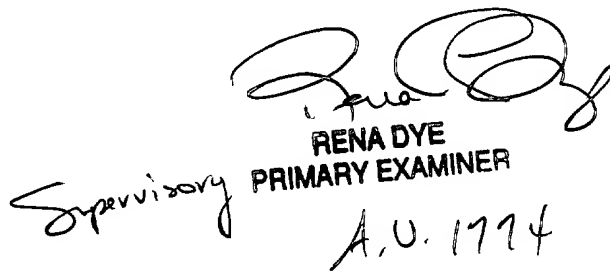 RENA DYE
Supervisory PRIMARY EXAMINER
A.U. 1774